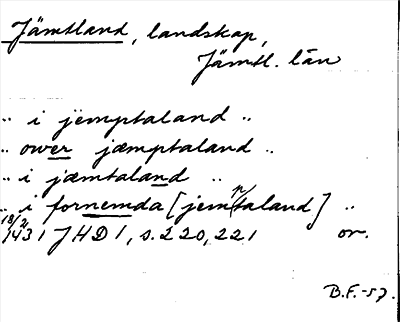 Jämtland, landskap,
Jämtl. län
" i jemptaland "
" ower jæmptaland "
" i jæmtaland "
" i fornemda [jemptaland] "
18/2 1431 JHD 1, s. 220, 221 or.
B.F.-57.